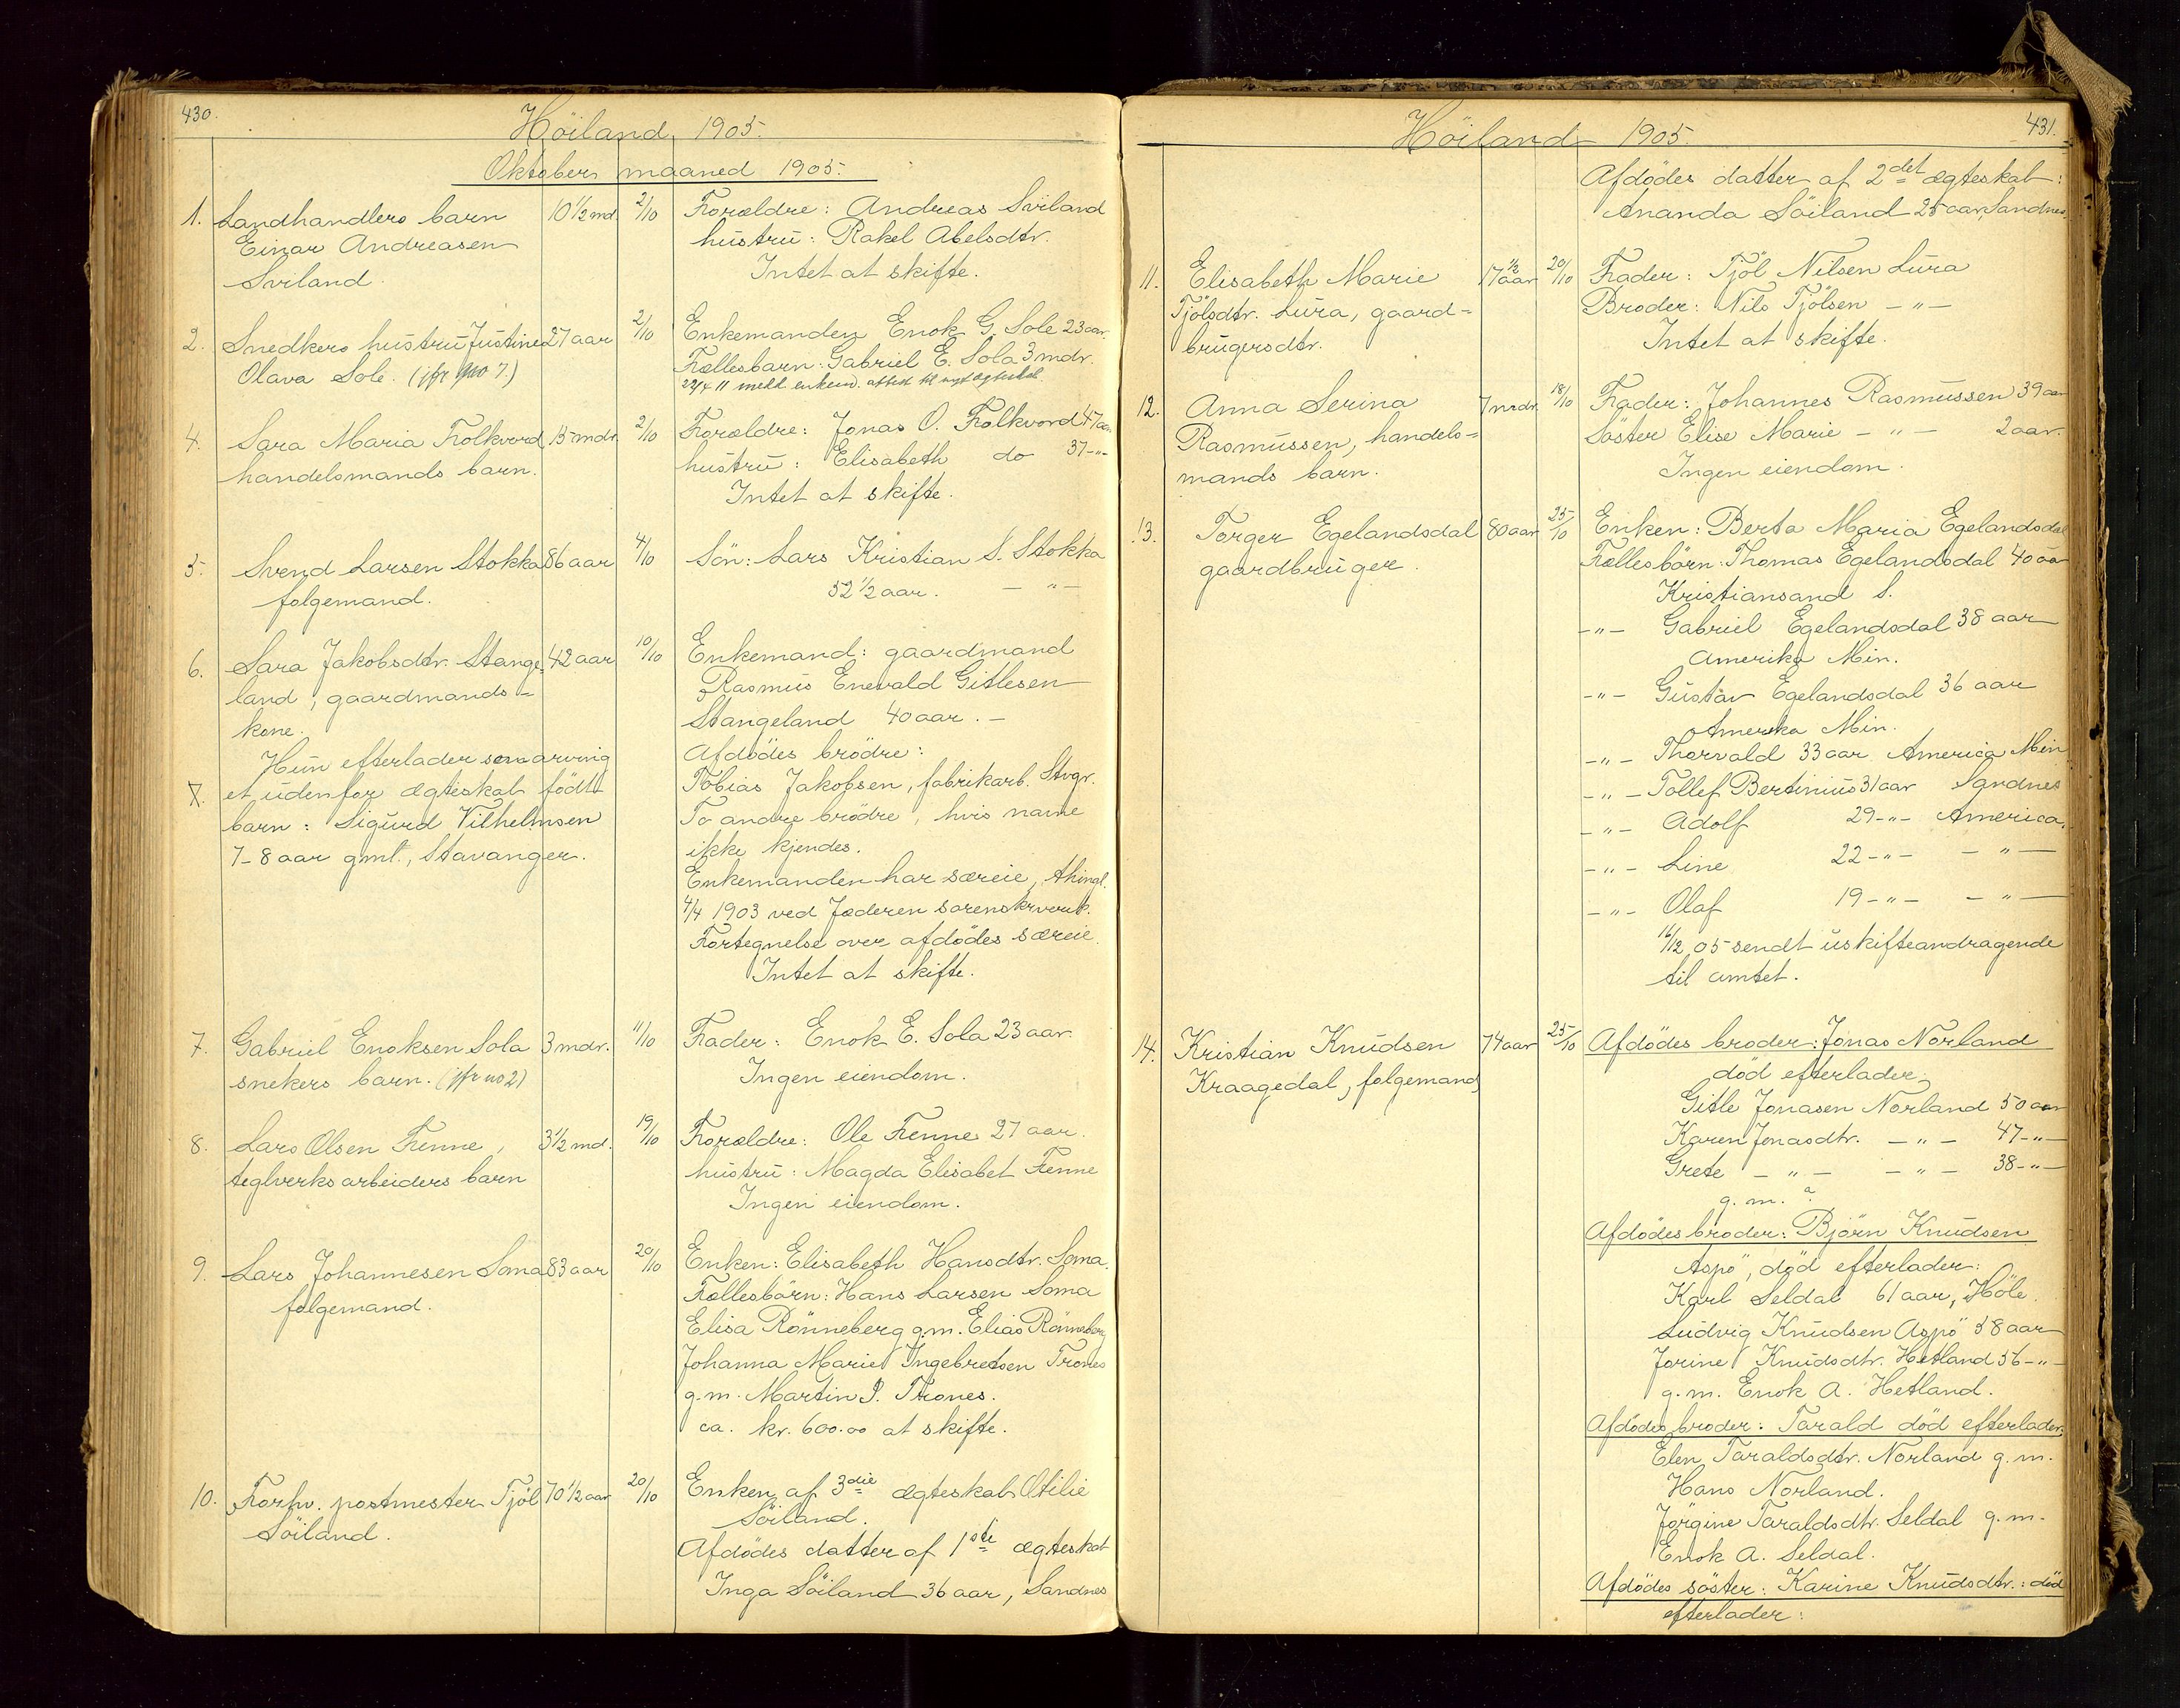 430.
Höiland 1905.
Oktober maaned 1905.
1. Landhandlers barn 10 1/2 md. 2/10 Forældre: Andreas Sviland
Einar Andreasen hustru: Rakel Abelsdtr.
Sviland. Intet at skifte.
2. Snedkers hustru Justine 27 aar 2/10 Enkemanden Enok G. Sole 23 aar.
Olava Sole. (jfr no 7.) Fællesbarn: Gabriel E. Sola 3 mdr.
22/4 11 meld. enkem. attest til nyt ægteskab.
4. Sara Maria Folkvord 15 mdr. 2/10 Forældre: Jonas O. Folkvord 47 aar
handelsmands barn. hustru: Elisabeth do 37 -"-
Intet at skifte.
5. Svend Larsen Stokka 86 aar 4/10 Sön: Lars Kristian S. Stokka
folgemand. 52 1/2 aar. - " -
6. Sara Jakobsdtr. Stange= 42 aar 10/10 Enkemand: gaardmand
land, gaardmands- Rasmus Enevald Gitlesen
kone. Stangeland 40 aar. -
Hun efterlader som arving Afdödes brödre:
7. et udenfor ægteskab födt Tobias Jakobsen, fabrikarb. Stvgr.
barn: Sigurd Vilhelmsen To andre brödre, hvis navne
7-8 aar gml., Stavanger. ikke kjendes.
Enkemanden har særeie, thingl.
4/4 1903 ved Jæderen sorenskrverik.
Fortegnelse over afdödes særeie.
Intet at skifte.
7. Gabriel Enoksen Sola 3 mdr. 11/10 Fader: Enok E. Sola 23 aar.
snekers barn. (jfr no 2) Ingen eiendom.
8. Lars Olsen Fenne, 3 1/2 md. 19/10 Forældre: Ole Fenne 27 aar.
teglverksarbeiders barn hustru: Magda Elisabet Fenne
Ingen eiendom.
9. Lars Johannesen Soma 83 aar 20/10 Enken: Elisabeth Hansdtr. Soma.
folgemand. Fællesbörn: Hans Larsen Soma
Elisa Rönneberg g.m. Elias Rönneberg
Johanna Marie Ingebretsen Trones
g.m. Martin I. Trones.
ca. kr. 600.00 at skifte.
10. Forhv. postmester Tjöl 70 1/2 aar 20/10 Enken af 3die ægteskab Otilie
Söiland. Söiland.
Afdödes datter af 1ste ægteskab
Inga Söiland 36 aar, Sandnes
Höiland 1905. 431.
Afdödes datter af 2det ægteskab:
Ananda Söiland 25 aar, Sandnes.
11. Elisabeth Marie 17 1/2 aar 20/10 Fader: Tjöl Nilsen Lura
Tjölsdtr. Lura, gaard= Broder: Nils Tjölsen - " -
brugersdtr. Intet at skifte.
12. Anna Serina 7 mdr. 18/10 Fader: Johannes Rasmussen 39 aar
Rasmussen, handels= Söster Elise Marie - " - 2 aar.
mands barn. Ingen eiendom.
13. Torger Egelandsdal 80 aar 25/10 Enken: Berta Maria Egelandsdal
gaardbruger. Fællesbörn: Thomas Egelandsdal 40 aar
Kristiansand S.
-"- Gabriel Egelandsdal 38 aar
Amerika Min.
-"- Gustav Egelandsdal 36 aar
Amerika Min.
-"- Thorvald 33 aar America Min
-"- Tollef Bertinius 31 aar Sandnes
-"- Adolf 29 -"- America.
-"- Line 22 -"- - " -
-"- Olaf 19 -"- - " -
16/12 05 sendt uskifteandragende
til amtet.
14. Kristian Knudsen 74 aar 25/10 Afdödes broder: Jonas Norland
Kraagedal, folgemand död efterlader
Gitle Jonasen Norland 50 aar
Karen Jonasdtr. - " - 47 -"-
Grete - " - - " - 38 -"-
g.m. ?
Afdödes broder: Björn Knudsen
Aspö, död efterlader:
Karl Seldal 61 aar, Höle.
Ludvig Knudsen Aspö 58 aar
Jorine Knudsdtr. Hetland 56 -"-
g.m. Enok A. Hetland.
Afdödes broder: Tarald död efterlader.
Elen Taraldsdtr. Norland g.m.
Hans Norland.
Jörgine Taraldsdtr. Seldal g.m.
Enok A. Seldal.
Afdödes söster: Karine Knudsdtr.: död
efterlader: